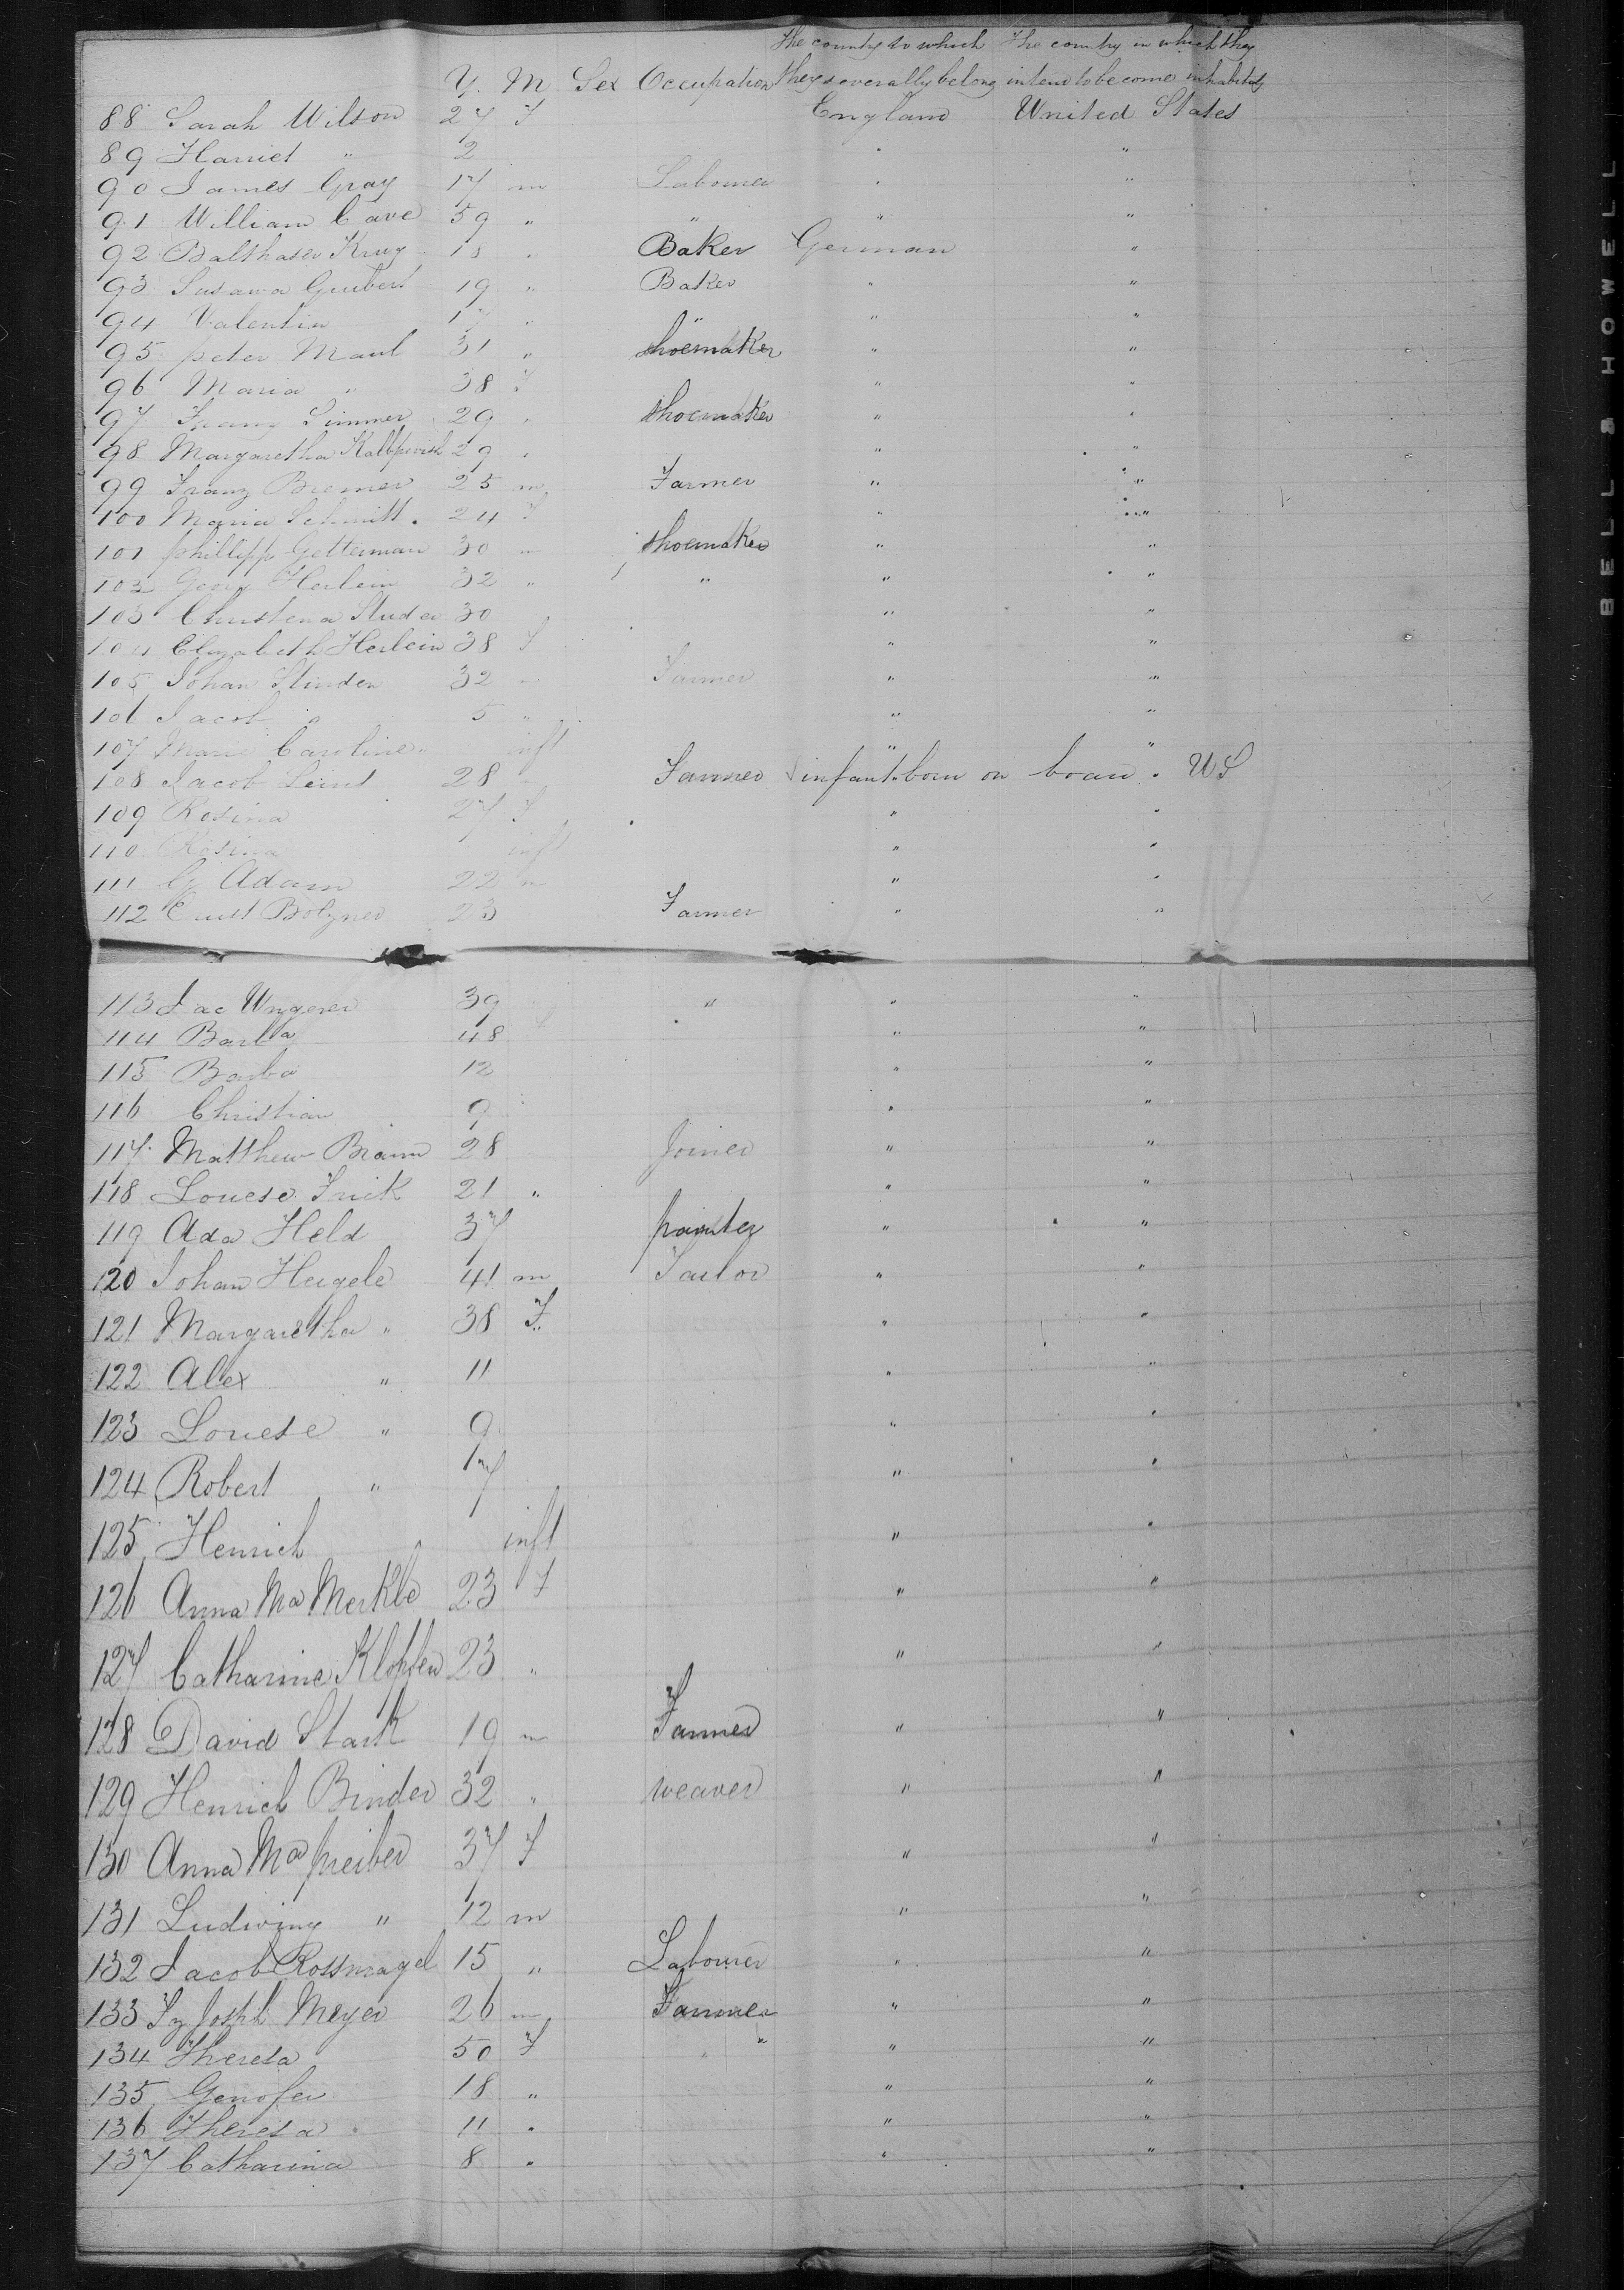 The county to which The country in which they
Y. M Sex Occupation they severally belong intend to become inhabitants
88 Sarah Wilson 27 F England United States
89 Harriet " 2 " "
90 James Gray 17 m Labourer " "
91 William Cave 59 " " " "
92 Balthaser Krug 18 " Baker German "
93 Susana Grubert 19 " Baker " "
94 Valentin 17 " " " "
95 peter Maul 31 " shoemaker " "
96 Maria " 38 F " "
97 Franz Simmer 29 " shoemaker " "
98 Margaretha 29 " " "
99 Franz Bremer 25 m Farmer " "
100 Maria Schmitt 24 F " "
101 phillipp Getterman 30 m shoemaker " "
102 Georg Herbein 32 " " " "
103 Christena Studer 30 " "
104 Elizabeth Herbein 38 F " "
105 Johan Stinden 32 " Farmer " "
106 Jacob " 5 " " "
107 Marie Caroline " inft " "
108 Jacob Leint 28 m Farmer infant born on boar . US
109 Rosina 27 F " "
110 Rosina inft " "
111 G Adam 22 m " "
112 Ernst Bolzner 23 Farmer " "
113 Jac Ungerer 39 " " "
114 Barba 48 F " "
115 Barba 12 " "
116 Christian 9 " "
117 Matthew Braun 28 Joiner " "
118 Louese Frick 21 " " "
119 Ada Held 37 painter " "
120 Johan Heigele 41 m Tailor " "
121 Margaretha " 38 F " "
122 Alex " 11 " "
123 Louese " 9 " "
124 Robert " 7 " "
125 Henrich " inft " "
126 Anna Ma Merkle 23 F " "
127 Catharine Klopfer 23 " " "
128 David Stark 19 m Farmer " "
129 Henrich Binder 32 " weaver " "
130 Anna Ma preiber 37 F " "
131 Ludwing " 12 m " "
132 Jacob Rossnagel 15 " Labourer " "
133 Fz Josph Meyer 26 m Farmer " "
134 Theresa 50 F " " "
135 Genofev 18 " " "
136 Theresa 11 " " "
137 Catharina 8 " " "
BELL & HOWELL